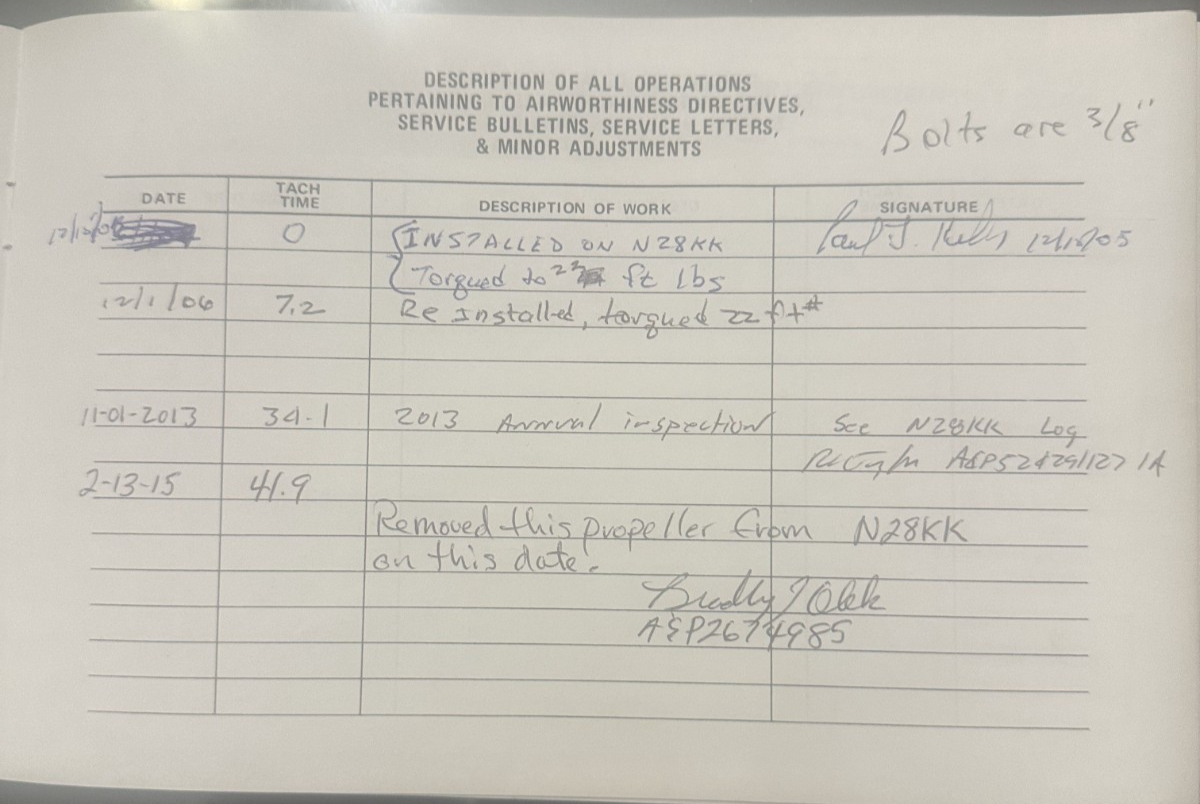 DESCRIPTION OF ALL OPERATIONS
PERTAINING TO AIRWORTHINESS DIRECTIVES,
SERVICE BULLETINS, SERVICE LETTERS,
& MINOR ADJUSTMENTS
Bolts are 3/8"
DATE TACH TIME DESCRIPTION OF WORK SIGNATURE
0 INSTALLED ON N28KK Paul J. Kelly
Torqued to ft lbs
12/1/06 7.2 Re Installed, torqued 22 ft #
11-01-2013 34.1 2013 Annual inspection See N28KK Log
2-13-15 41.9
Removed this propeller from N28KK
on this date.
A&P2674985